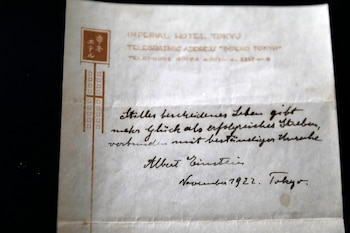 帝国
ホテル
IMPERIAL HOTEL TOKYO
TELEGRAPHIC ADDRESS "IMPHO TOKYO"
TELEPHONE
Stilles bescheidenes Leben gibt
mehr Glück als erfolgreiches Streben,
verbunden mit beständiger Unruhe.
Albert Einstein
November 1922. Tokyo.